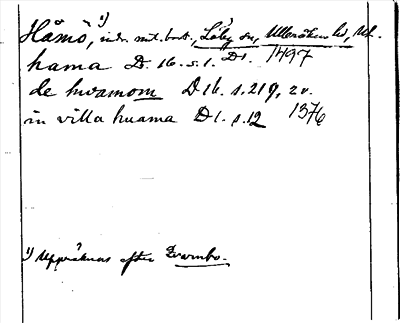 Håmö, 1) indr. mt. bost., Läby sn, Ulleråkers hd, Upl.
hama D. 16. s. 1. D1. 1497
de hwamom D 16. s. 219, 20.
in villa huama D 1. s. 12 1376
1) Uppräknas efter Kvarnbo.